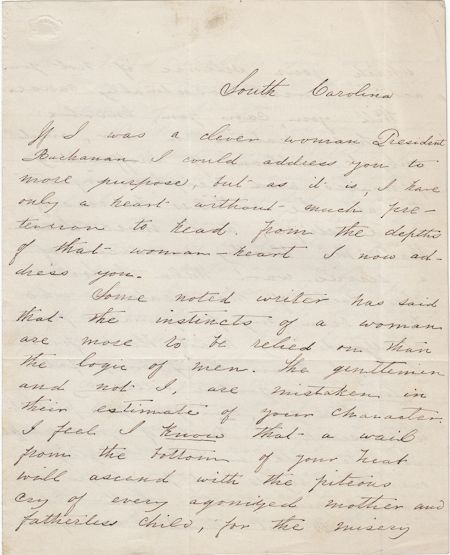 South Carolina
If I was a clever woman President
Buchanan I could address you to
more purpose, but as it is, I have
only a heart without much pre-
tension to head. From the depths
of that woman-heart I now ad-
dress you.
Some noted writer has said
that the instincts of a woman
are more to be relied on than
the logic of men. The gentlemen
and not I, are mistaken in
their estimate of your character.
I feel I know that a wail
from the bottom of your heat
will ascend with the piteous
cry of every agonized mother and
fatherless child, for the misery